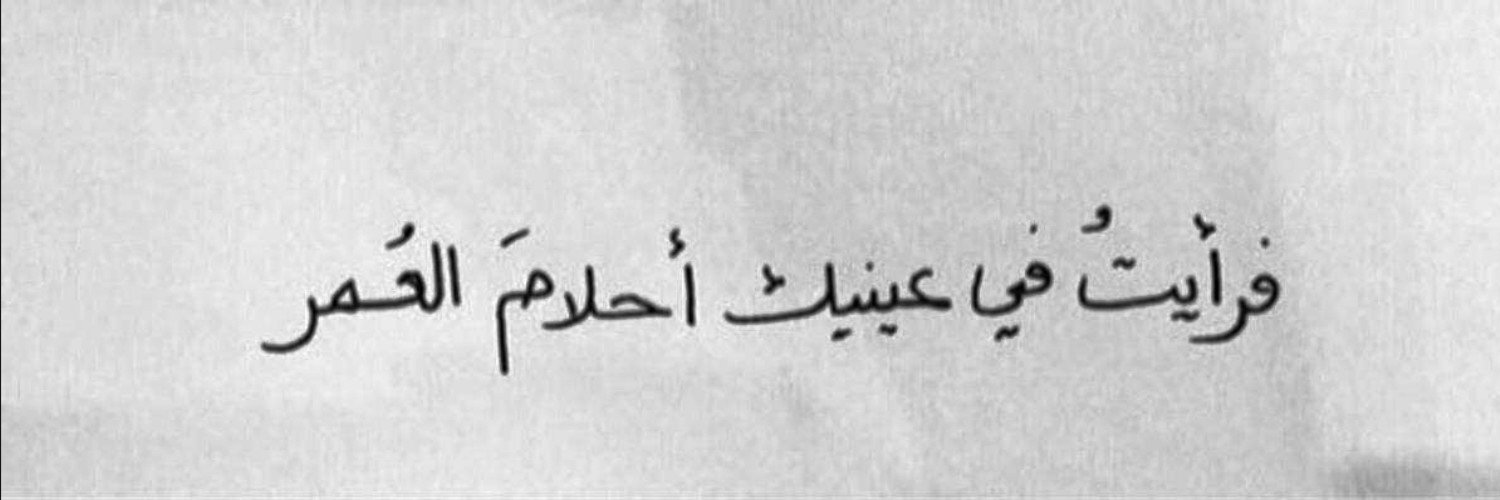 فرأيتُ في عينيك أحلامَ العُمر